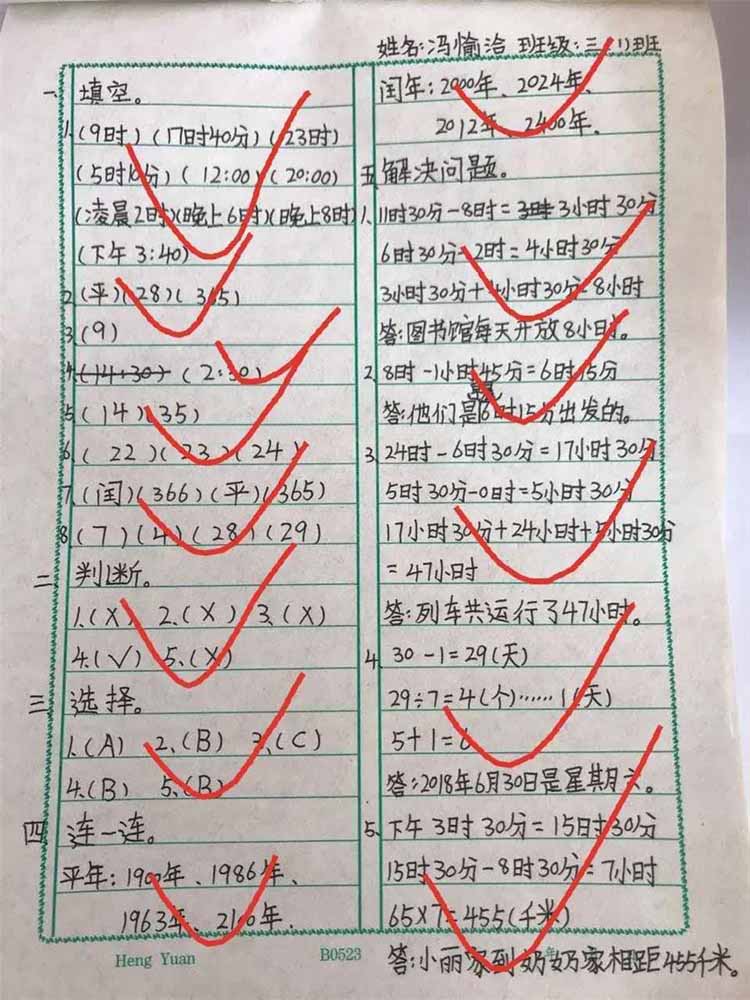 姓名:冯愉治 班级:三.(1)班
一、填空。
1.(9时)(17时40分)(23时)
(5时10分)(12:00)(20:00)
(凌晨2时)(晚上6时)(晚上8时)
(下午3:40)
2.(平)(28)(365)
3.(9)
4.(14:30)(2:30)
5.(14)(35)
6.(22)(23)(24)
7.(闰)(366)(平)(365)
8.(7)(4)(28)(29)
二、判断。
1.(X) 2.(X) 3.(X)
4.(√) 5.(X)
三、选择。
1.(A) 2.(B) 3.(C)
4.(B) 5.(B)
四、连一连。
平年:1900年、1986年、
1963年、2100年.
闰年:2000年、2024年、
2012年、2400年.
五、解决问题。
1.11时30分-8时=3时3小时30分
6时30分-2时=4小时30分
3小时30分+4小时30分=8小时
答:图书馆每天开放8小时。
2.8时-1小时45分=6时15分
答:他们是早晨6时15分出发的。
3.24时-6时30分=17小时30分
5时30分-0时=5小时30分
17小时30分+24小时+5小时30分
=47小时
答:列车共运行了47小时。
4.30-1=29(天)
29÷7=4(个)……1(天)
5+1=6
答:2018年6月30日是星期六。
5.下午3时30分=15时30分
15时30分-8时30分=7小时
65×7=455(千米)
答:小丽家到奶奶家相距455千米。
Heng Yuan B0523 年